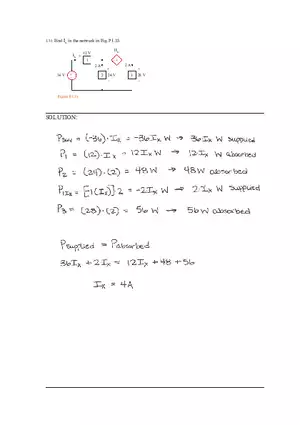 Find Iₓ in the network in Fig. P1.35.
Iₓ + 12 V −
1
2 A
2 A
36 V
2
24 V
3
28 V
SOLUTION:
P36V = (-36)·Iₓ = -36Iₓ W → 36Iₓ W supplied
P1 = (12)·Iₓ = 12Iₓ W → 12Iₓ W absorbed
P2 = (24)·(2) = 48 W → 48 W absorbed
P1Iₓ = [-1(Iₓ)] 2 = -2Iₓ W → 2·Iₓ W supplied
P3 = (28)·(2) = 56 W → 56 W absorbed
Psupplied = Pabsorbed
36Iₓ + 2Iₓ = 12Iₓ + 48 + 56
Iₓ = 4A